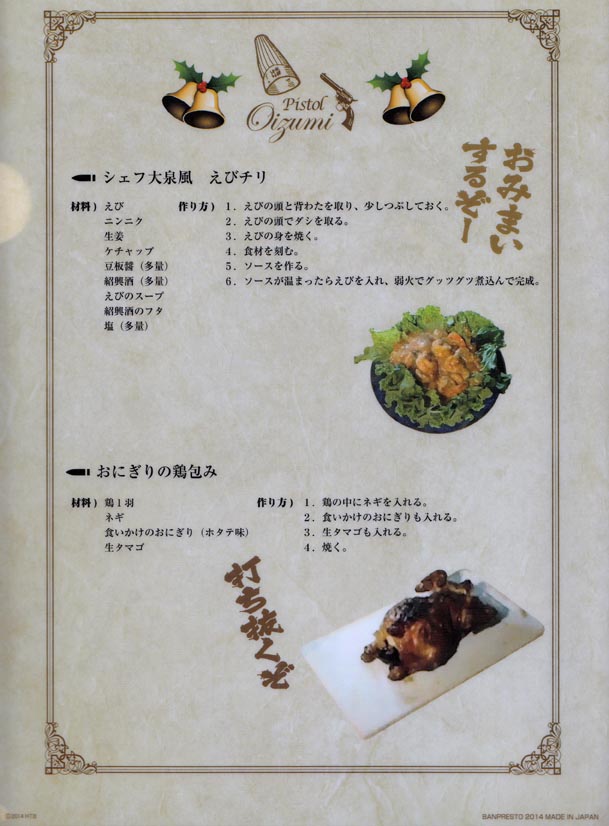 Pistol
Oizumi
おみまい
するぞー
シェフ大泉風　えびチリ
材料）えび
ニンニク
生姜
ケチャップ
豆板醤（多量）
紹興酒（多量）
えびのスープ
紹興酒のフタ
塩（多量）
作り方）1．えびの頭と背わたを取り、少しつぶしておく。
2．えびの頭でダシを取る。
3．えびの身を焼く。
4．食材を刻む。
5．ソースを作る。
6．ソースが温まったらえびを入れ、弱火でグッツグツ煮込んで完成。
おにぎりの鶏包み
材料）鶏1羽
ネギ
食いかけのおにぎり（ホタテ味）
生タマゴ
作り方）1．鶏の中にネギを入れる。
2．食いかけのおにぎりも入れる。
3．生タマゴも入れる。
4．焼く。
打ち抜くぞ
©2014 HTB
BANPRESTO 2014 MADE IN JAPAN